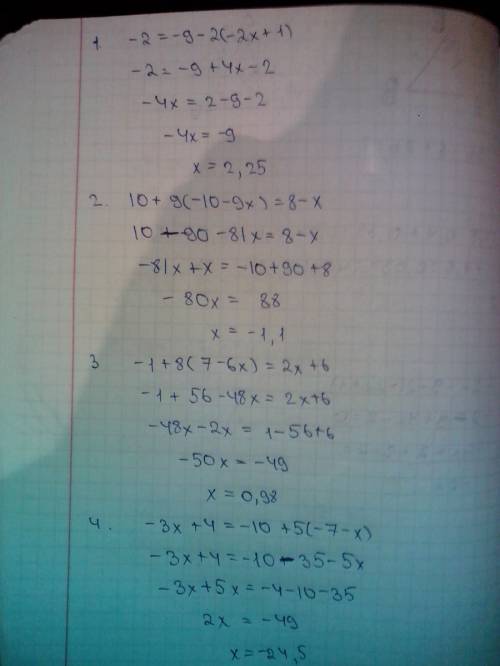 1. -2 = -9 - 2(-2x+1)
-2 = -9 + 4x - 2
-4x = 2 - 9 - 2
-4x = -9
x = 2,25
2. 10 + 9(-10-9x) = 8-x
10 - 90 - 81x = 8-x
-81x + x = -10+90+8
-80x = 88
x = -1,1
3 -1+8(7-6x) = 2x+6
-1 + 56 - 48x = 2x+6
-48x - 2x = 1-56+6
-50x = -49
x = 0,98
4. -3x + 4 = -10 + 5(-7-x)
-3x+4 = -10 - 35 - 5x
-3x+5x = -4-10-35
2x = -49
x = -24,5